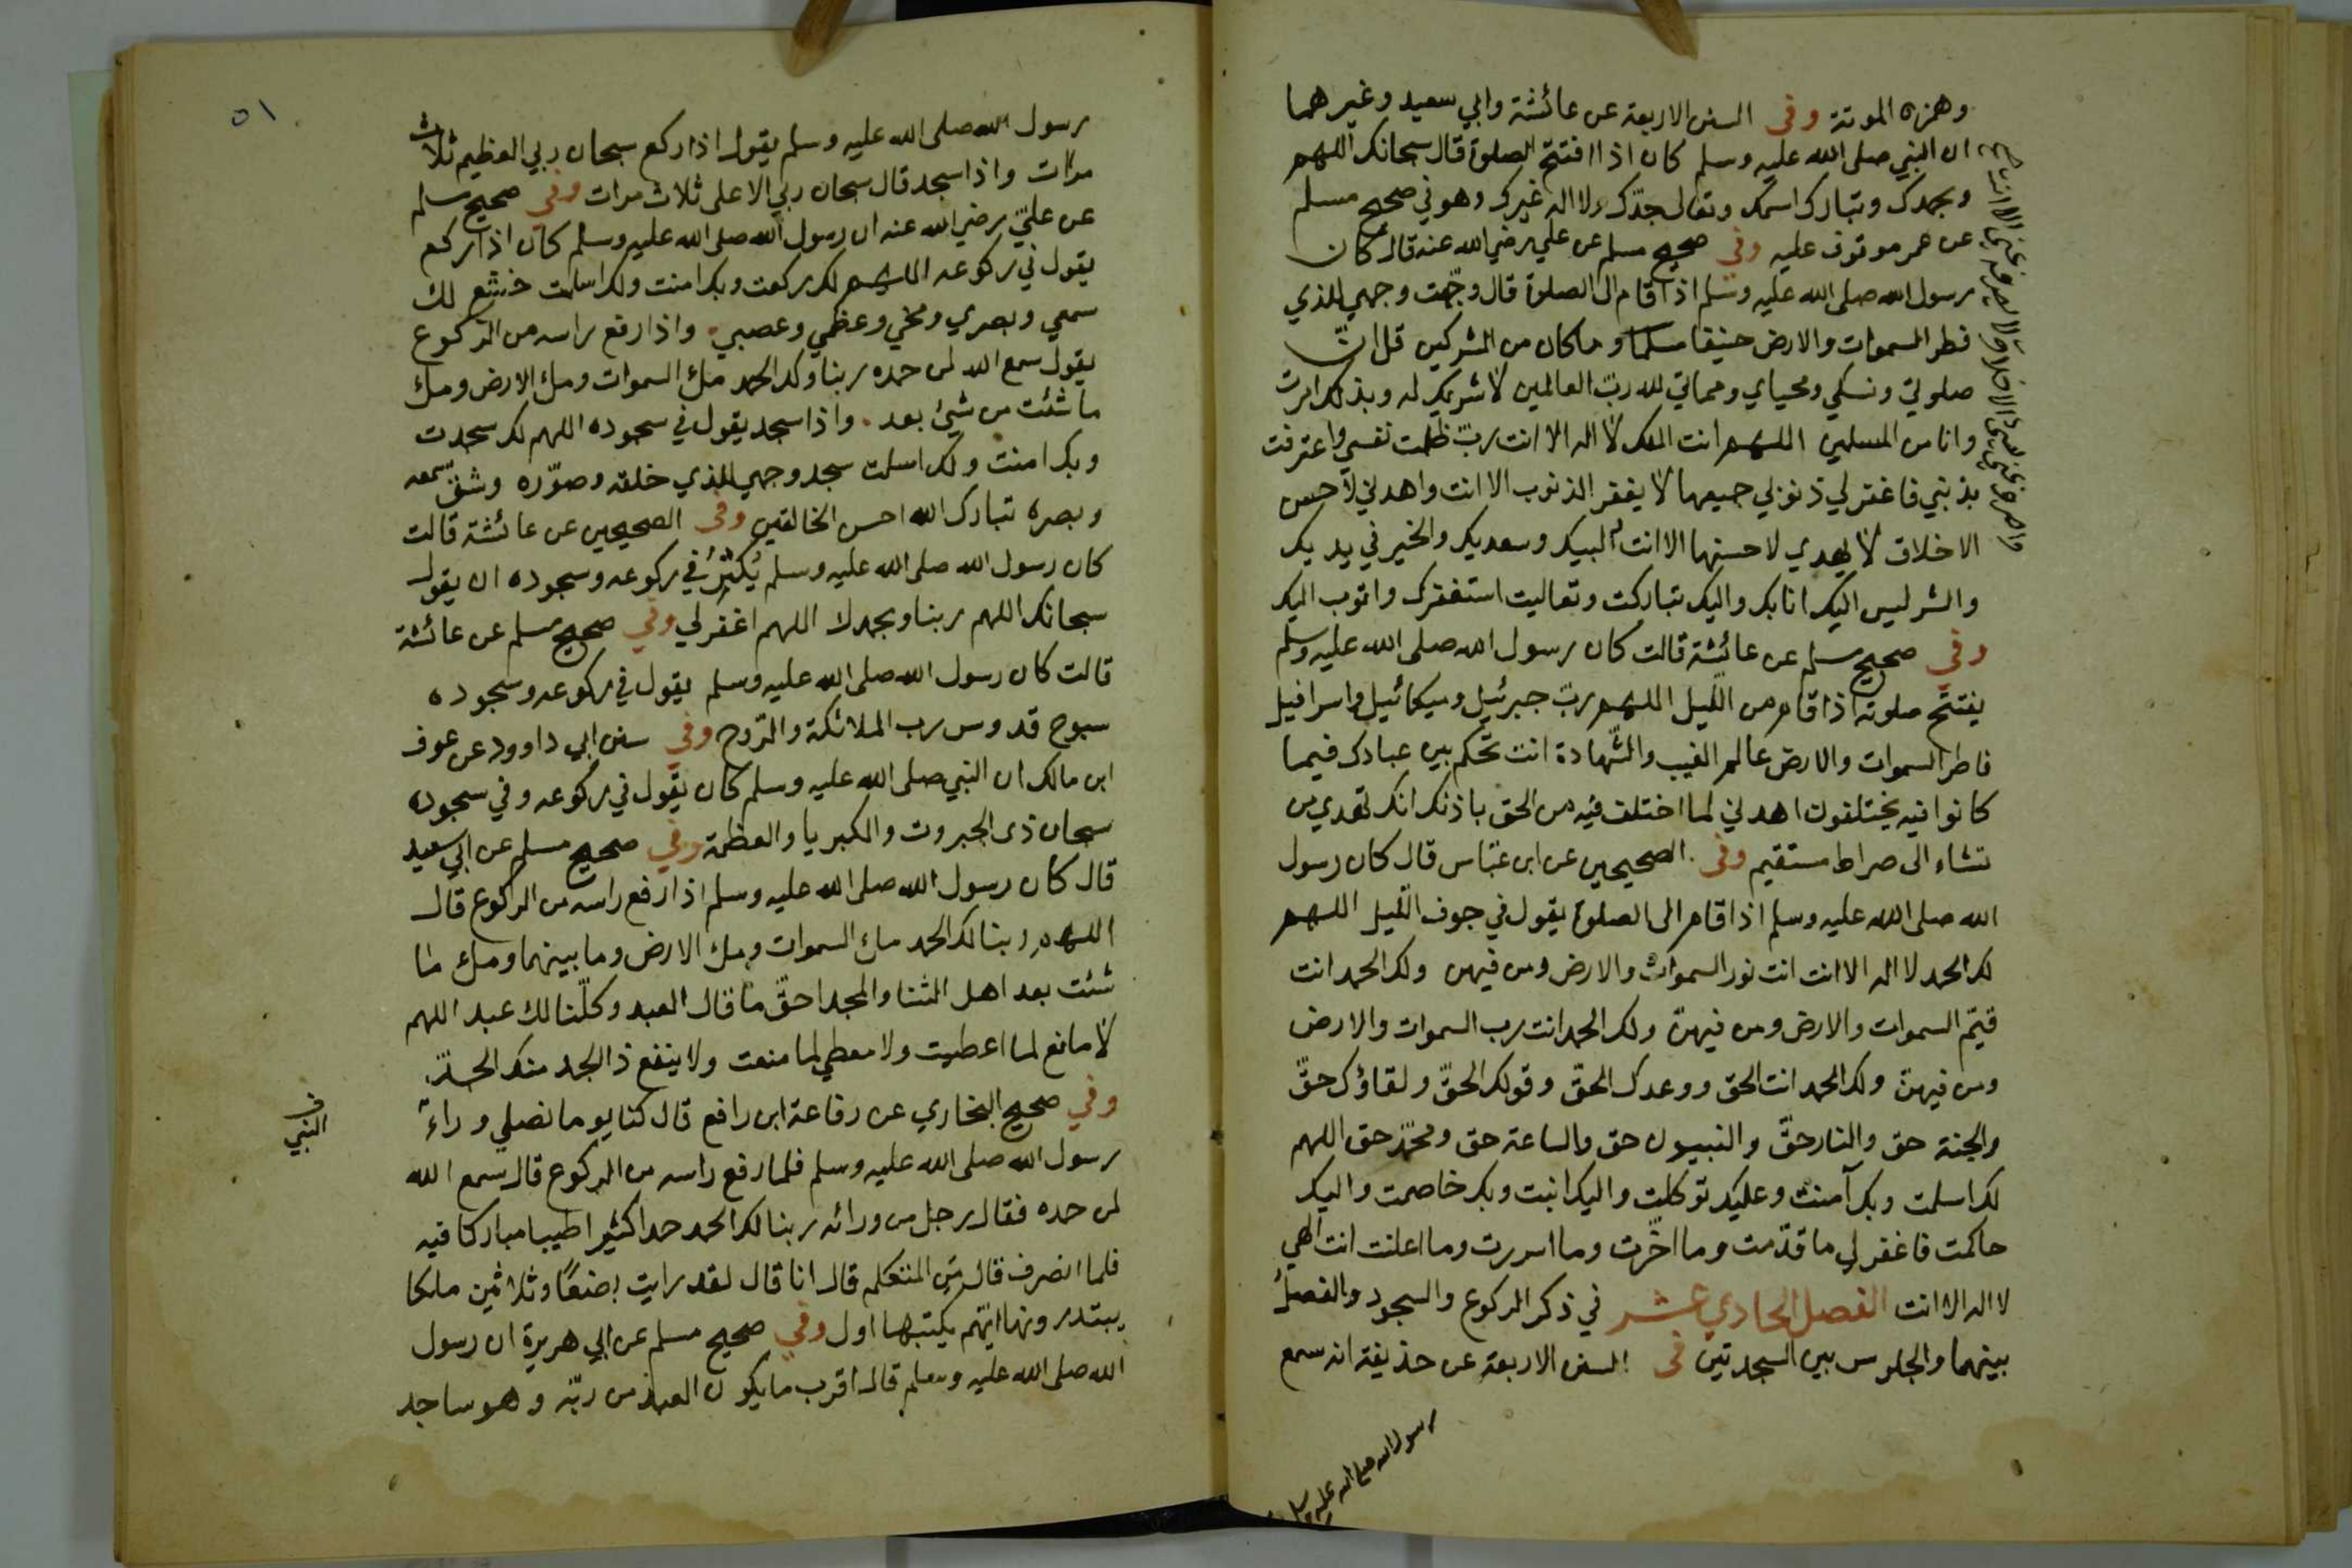 وهمزه الموتة وفى السنن الاربعة عن عائشة وابي سعيد وغيرهما
ان النبي صلى الله عليه وسلم كان اذا افتتح الصلوة قال سبحانك اللهم
وبحمدك وتبارك اسمك وتعالى جدّك ولا اله غيرك وهو في صحيح مسلم
عن عمر موقوف عليه وفي صحيح مسلم عن علي رضي الله عنه قال كان
رسول الله صلى الله عليه وسلم اذا قام الى الصلوة قال وجّهت وجهي للذي
فطر السموات والارض حنيفا مسلما وما كان من المشركين قل انّ
صلوتي ونسكي ومحياي ومماتي لله ربّ العالمين لا شريك له وبذلك امرت
وانا من المسلمين اللهم انت الملك لا اله الا انت ربّ ظلمت نفسي واعترفت
بذنبي فاغفر لي ذنوبي جميعها لا يغفر الذنوب الا انت واهدني لاحسن
الاخلاق لا يهدي لاحسنها الا انت لبيك وسعديك والخير في يديك
والشر ليس اليك انا بك واليك تباركت وتعاليت استغفرك واتوب اليك
وفي صحيح مسلم عن عائشة قالت كان رسول الله صلى الله عليه وسلم
يفتتح صلوته اذا قام من الليل اللهم ربّ جبرئيل وميكائيل واسرافيل
فاطر السموات والارض عالم الغيب والشّهادة انت تحكم بين عبادك فيما
كانوا فيه يختلفون اهدني لما اختلف فيه من الحق باذنك انك تهدي من
تشاء الى صراط مستقيم وفى الصحيحين عن ابن عبّاس قال كان رسول
الله صلى الله عليه وسلم اذا قام الى الصلوة يقول في جوف الليل اللهم
لك الحمد لا اله الا انت انت نور السموات والارض ومن فيهن ولك الحمد انت
قيّم السموات والارض ومن فيهنّ ولك الحمد انت رب السموات والارض
ومن فيهنّ ولك الحمد انت الحق ووعدك الحقّ وقولك الحقّ ولقاؤك حقّ
والجنة حق والنار حقّ والنبيون حق والساعة حق ومحمّد حق اللهم
لك اسلمت وبك آمنت وعليك توكلت واليك انبت وبك خاصمت واليك
حاكمت فاغفر لي ما قدّمت وما اخّرت وما اسررت وما اعلنت انت الهي
لا اله الا انت الفصل الحادي عشر في ذكر الركوع والسجود والفصل
بينهما والجلوس بين السجدتين فى السنن الاربعة عن حذيفة انه سمع
رسول الله صلى الله عليه وسلم
واصرف عني
٥١
رسول الله صلى الله عليه وسلم يقول اذا ركع سبحان ربي العظيم ثلاث
مرات واذا سجد قال سبحان ربي الاعلى ثلاث مرات وفي صحيح مسلم
عن عليّ رضي الله عنه ان رسول الله صلى الله عليه وسلم كان اذا ركع
يقول في ركوعه اللهم لك ركعت وبك امنت ولك اسلمت خشع لك
سمعي وبصري ومخي وعظمي وعصبي. واذا رفع راسه من الركوع
يقول سمع الله لمن حمده ربنا ولك الحمد ملئ السموات وملئ الارض وملئ
ما شئت من شيئ بعد. واذا سجد يقول في سجوده اللهم لك سجدت
وبك امنت ولك اسلمت سجد وجهي للذي خلقه وصوّره وشقّ سمعه
وبصره تبارك الله احسن الخالقين وفى الصحيحين عن عائشة قالت
كان رسول الله صلى الله عليه وسلم يُكثِرُ في ركوعه وسجوده ان يقول
سبحانك اللهم ربنا وبحمدك اللهم اغفر لي وفي صحيح مسلم عن عائشة
قالت كان رسول الله صلى الله عليه وسلم يقول في ركوعه وسجوده
سبوح قدوس رب الملائكة والرّوح وفي سنن ابي داوود عن عوف
ابن مالك ان النبي صلى الله عليه وسلم كان يقول في ركوعه وفي سجوده
سبحان ذى الجبروت والكبريا والعظمة وفي صحيح مسلم عن ابي سعيد
قال كان رسول الله صلى الله عليه وسلم اذا رفع راسه من الركوع قال
اللهم ربنا لك الحمد ملئ السموات وملئ الارض وما بينهما وملئ ما
شئت بعد اهل الثنا والمجد احقّ ما قال العبد وكلّنا لك عبد اللهم
لا مانع لما اعطيت ولا معطي لما منعت ولا ينفع ذا الجد منك الجدّ
وفي صحيح البخاري عن رفاعة ابن رافع قال كنا يوما نصلي وراء
رسول الله صلى الله عليه وسلم فلما رفع راسه من الركوع قال سمع الله
لمن حمده فقال رجل من ورائه ربنا لك الحمد حمدا كثيرا طيبا مباركا فيه
فلما انصرف قال من المتكلم قال انا قال لقد رايت بضعًا وثلاثين ملكا
يبتدرونها ايّهم يكتبها اول وفي صحيح مسلم عن ابي هريرة ان رسول
الله صلى الله عليه وسلم قال اقرب ما يكون العبد من ربّه وهو ساجد
النبي